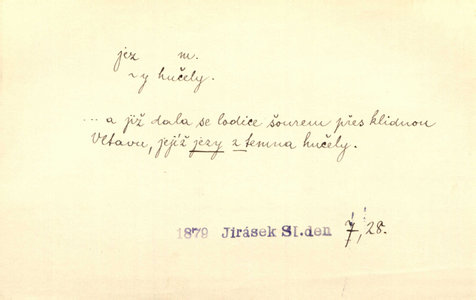 jez m.
~y hučely.
... a již dala se lodice šourem přes klidnou
Vltavu, jejíž jezy z temna hučely.
1879 Jirásek Sl.den 7, 28.